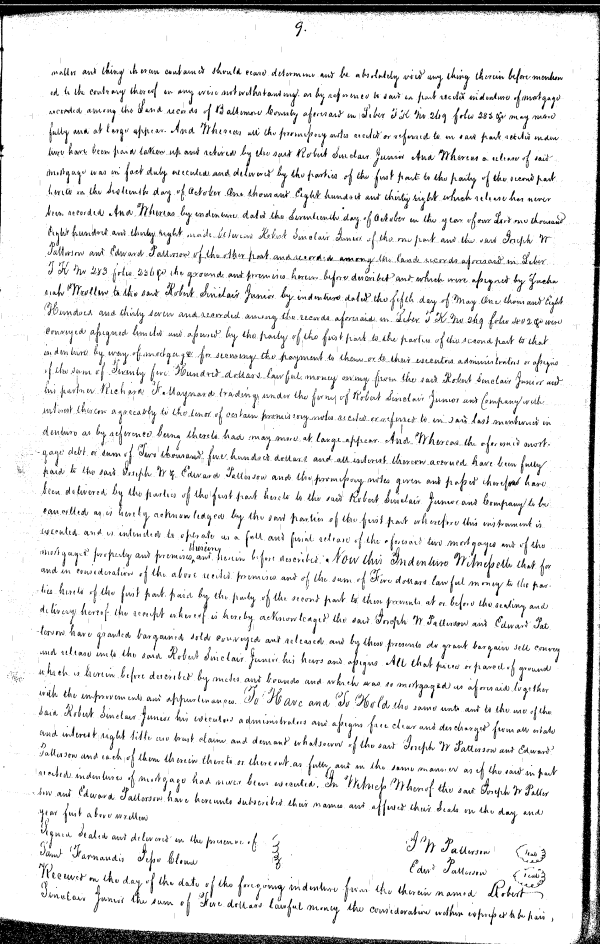 9.
matter and thing therein contained should cease determine and be absolutely void any thing therein before mention
ed to the contrary thereof in any wise notwithstanding as by reference to said in part recited indenture of mortgage
recorded among the Land records of Baltimore County aforesaid in Liber T K No 269 folio 283 &c may more
fully and at large appear. And Whereas all the promissory notes recited or referred to in said part recited inden
ture have been paid taken up and retired by the said Robert Sinclair Junior And Whereas a release of said
mortgage was in fact duly executed and delivered by the parties of the first part to the party of the second part
hereto on the Sixteenth day of October One thousand Eight hundred and thirty eight which release has never
been recorded And Whereas by indenture dated the Seventeenth day of October in the year of our Lord one thousand
Eight hundred and thirty eight made between Robert Sinclair Junior of the one part and the said Joseph W
Patterson and Edward Patterson of the other part and recorded among the land records aforesaid in Liber
T K No 283 folio 236 &c the grounds and premises herein before described and which were assigned by Zacha
riah Woollen to the said Robert Sinclair Junior by indenture dated the fifth day of May One thousand Eight
Hundred and thirty seven and recorded among the records aforesaid in Liber T K No 269 folio 402 &c were
conveyed assigned limited and assured by the party of the first part to the parties of the second part to that
indenture by way of mortgage for securing the payment to them or to their executors administrators or assigns
of the sum of Twenty five Hundred dollars lawful money owing from the said Robert Sinclair Junior and
his partner Richard F. Maynard trading under the firm of Robert Sinclair Junior and Company with
interest thereon agreeably to the tenor of certain promissory notes recited or referred to in said last mentioned in
denture as by reference being thereto had may more at large appear. And Whereas the aforesaid mort-
gage debt or sum of Two thousand five hundred dollars and all interest thereon accrued have been fully
paid to the said Joseph W & Edward Patterson and the promissory notes given and passed therefor have
been delivered by the parties of the first part hereto to the said Robert Sinclair Junior and Company to be
cancelled as is hereby acknowledged by the said parties of the first part wherefore this instrument is
executed and is intended to operate as a full and final release of the aforesaid two mortgages and of the
mortgaged property and premises and herein before described. Now this Indenture Witnesseth that for
and in consideration of the above recited premises and of the sum of Five dollars lawful money to the par-
ties hereto of the first part paid by the party of the second part to these presents at or before the sealing and
delivery hereof the receipt whereof is hereby acknowledged the said Joseph W Patterson and Edward Pat
terson have granted bargained sold conveyed and released and by these presents do grant bargain sell convey
and release unto the said Robert Sinclair Junior his heirs and assigns All that piece or parcel of ground
which is herein before described by metes and bounds and which was so mortgaged as aforesaid together
with the improvements and appurtenances. To Have and To Hold the same unto and to the use of the
said Robert Sinclair Junior his executors administrators and assigns free clear and discharged from all estate
and interest right title use trust claim and demand whatsoever of the said Joseph W Patterson and Edward
Patterson and each of them therein thereto or thereout as fully and in the same manner as if the said in part
recited indentures of mortgage had never been executed. In Witness Whereof the said Joseph W Patter
son and Edward Patterson have hereunto subscribed their names and affixed their Seals on the day and
year first above written
Signed Sealed and delivered in the presence of J W Patterson Seal
Saml Farnandis Edwd Patterson Seal
Received on the day of the date of the foregoing indenture from the therein named Robert
Sinclair Junior the sum of Five dollars lawful money the consideration within expressed to be paid,